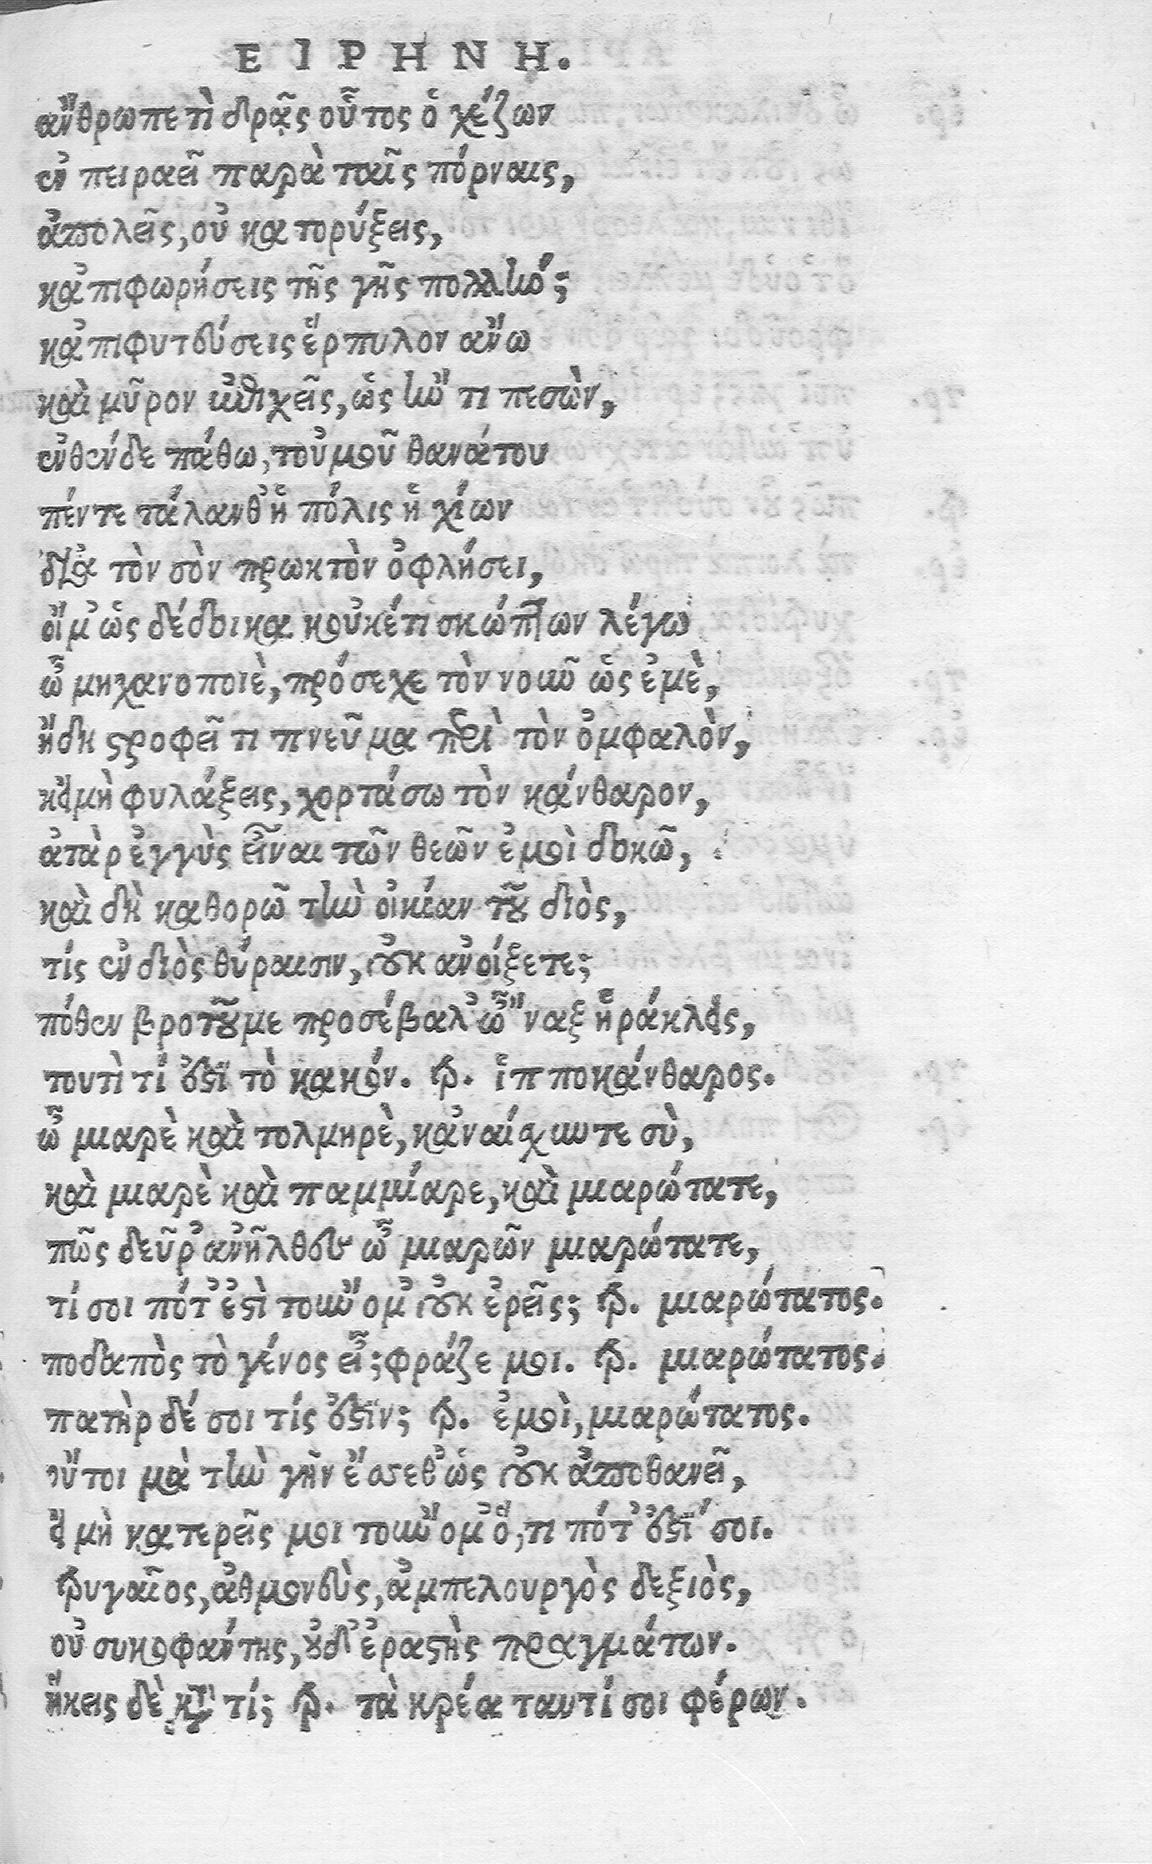 ΕΙΡΗΝΗ.
ἄνθρωπε τὶ δρᾷς οὗτος ὁ χέζων
ἐν πειραεῖ παρὰ ταῖς πόρναις,
ἀπολεῖς, οὐ κατορύξεις,
κἀπιφωρήσεις τῆς γῆς πολλήν;
κἀπιφυτεύσεις ἕρπυλον ἄνω
καὶ μῦρον ἐπιχεῖς, ὡς ἤν τι πεσὼν,
ἐνθένδε πάθω, τοὐμοῦ θανάτου
πέντε τάλανθ' ἡ πόλις ἡ χίων
διὰ τὸν σὸν πρωκτὸν ὀφλήσει,
οἴμ' ὡς δέδοικα κοὐκέτι σκώπτων λέγω
ὦ μηχανοποιὲ, πρόσεχε τὸν νοῦν ὡς ἐμὲ,
ἤδη στροφεῖ τι πνεῦμα περὶ τὸν ὀμφαλὸν,
κεἰ μὴ φυλάξεις, χορτάσω τὸν κάνθαρον,
ἀτὰρ ἐγγὺς εἶναι τῶν θεῶν ἐμοὶ δοκῶ,
καὶ δὴ καθορῶ τὴν οἰκίαν τοῦ διὸς,
τίς ἐν διὸς θύραισιν, οὐκ ἀνοίξετε;
πόθεν βροτοῦ με προσέβαλ' ὦ ἄναξ ἡράκλεις,
τουτὶ τί ἐστὶ τὸ κακόν. τρ. ἱπποκάνθαρος.
ὦ μιαρὲ καὶ τολμηρὲ, κἀναίσχυντε σὺ,
καὶ μιαρὲ καὶ παμμίαρε, καὶ μιαρώτατε,
πῶς δεῦρ' ἀνῆλθες ὦ μιαρῶν μιαρώτατε,
τί σοι πότ' ἐστὶ τοὔνομ' οὐκ ἐρεῖς; τρ. μιαρώτατος.
ποδαπὸς τὸ γένος εἶ; φράζε μοι. τρ. μιαρώτατος.
πατὴρ δέ σοι τίς ἐστὶν; τρ. ἐμοὶ, μιαρώτατος.
οὔτοι μὰ τὴν γῆν ἔσθ' ὡς οὐκ ἀποθανεῖ,
εἰ μὴ κατερεῖς μοι τοὔνομ' ὅ, τι πότ' ἐστί σοι.
τρυγαῖος, ἀθμονεὺς, ἀμπελουργὸς δεξιὸς,
οὐ συκοφάντης, οὐδ' ἐραστὴς πραγμάτων.
ἥκεις δὲ κατὰ τί; τρ. τὰ κρέα ταυτί σοι φέρων.